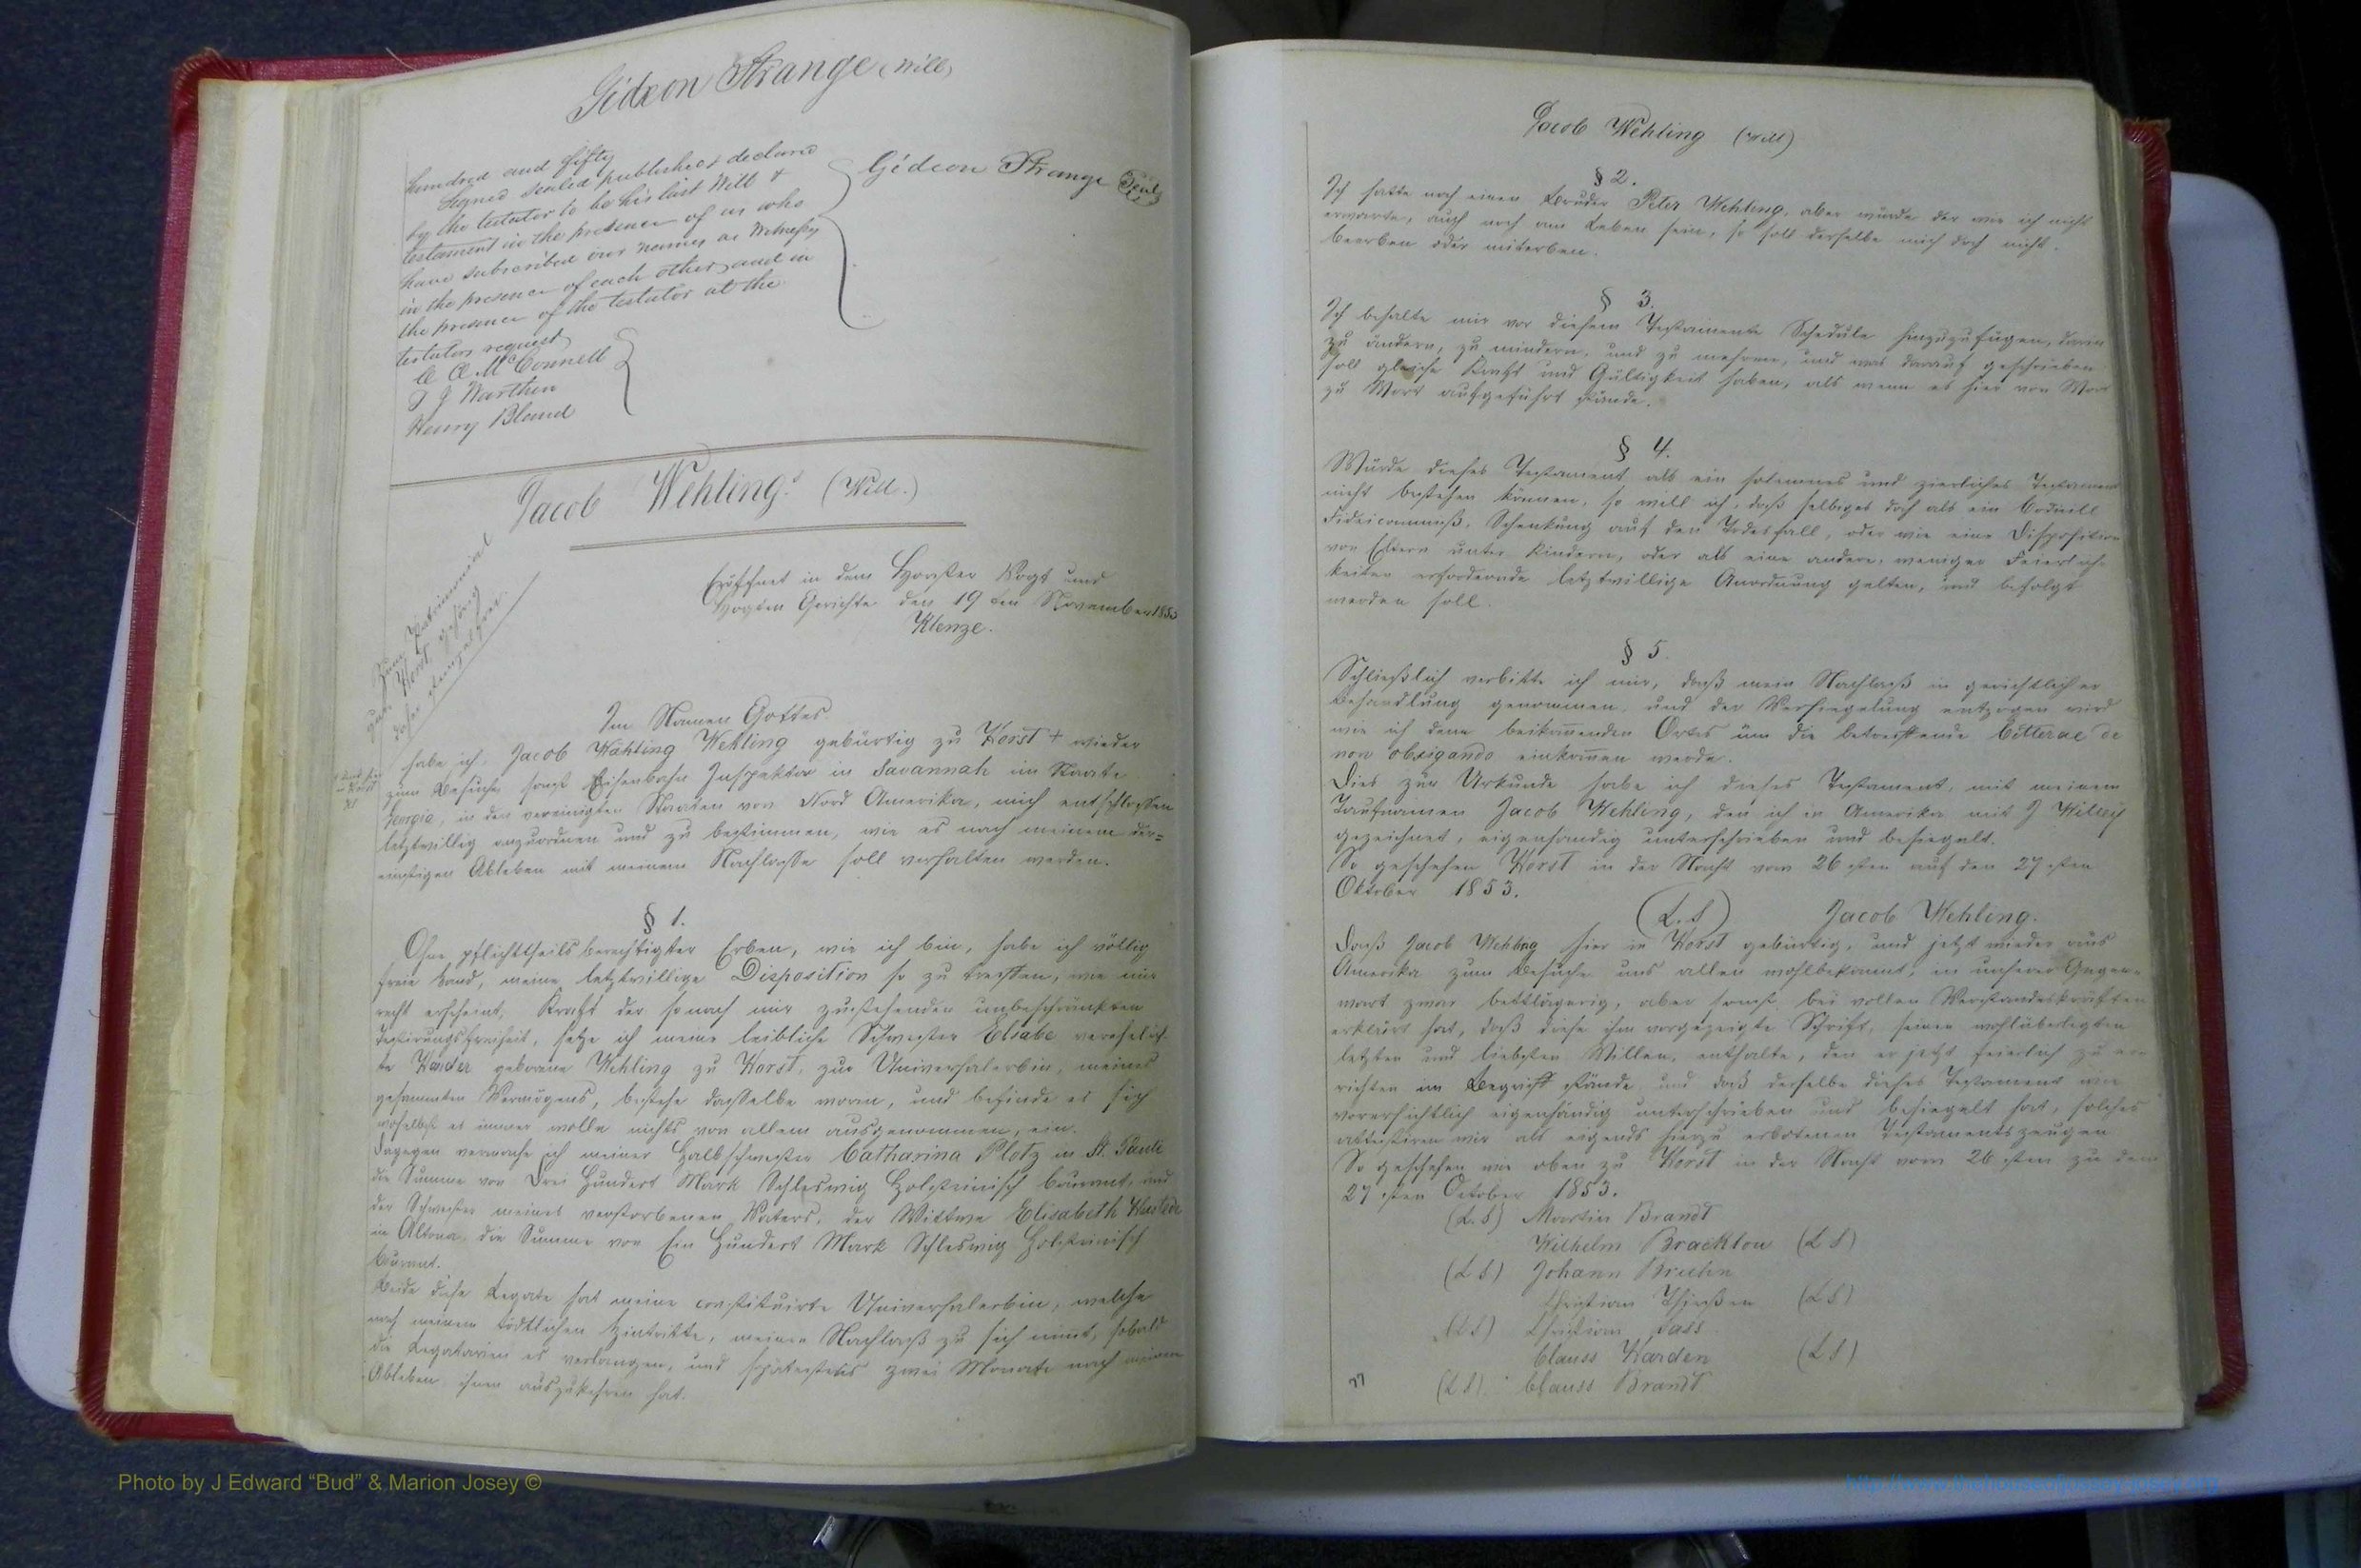 Gideon Strange (Will)
hundred and fifty
Signed sealed published & declared
by the testator to be his last Will &
testament in the presence of us who
have subscribed our names as Witness
in the presence of each other, and in
the presence of the testator at the
testators request
McConnell
Henry Bland
Gideon Strange Seal
Jacob Wehling (Will.)
Eröffnet in dem Horster Vogt und
Vogten Gerichte den 19 ten November 1853
Klenze.
Zum Patrimonial
Gut Horst gehörig
daher stempelfrei
Im Namen Gottes.
habe ich, Jacob Wehling gebürtig zu Horst + wieder
zum Besuche sonst Eisenbahn Inspektor in Savannah im Staate
Georgia, in den vereinigten Staaten von Nord Amerika, mich entschlossen
letztwillig anzuordnen und zu bestimmen, wie es nach meinem der=
einstigen Ableben mit meinem Nachlasse soll verhalten werden.
§ 1.
Ohne pflichttheilsberechtigter Erben, wie ich bin, habe ich völlig
freie Hand, meine letztwillige Disposition so zu treffen, wie mir
recht erscheint, Kraft der sonach mir zustehenden unbeschränkten
Testirungsfreiheit, setze ich meine leibliche Schwester Elsabe verehelich-
te geborene Wehling zu Horst, zur Universalerbin, meines
gesammten Vermögens, bestehe dasselbe worin, und befinde es sich
woselbst es immer wolle nichts von allem ausgenommen, ein.
Dagegen vermache ich meiner Halbschwester Catharina Plotz in St. Pauli
die Summe von Drei Hundert Mark Schleswig Holsteinisch Courant, und
der Schwester meines verstorbenen Vaters, der Wittwe Elisabeth
in Altona, die Summe von Ein Hundert Mark Schleswig Holsteinisch
Courant.
Beide diese Legate hat meine constituirte Universalerbin, welche
nach meinem tödtlichen Hintritte, meinen Nachlaß zu sich nimt, sobald
die Legatarien es verlangen, und spätestens zwei Monate nach meinem
Ableben ihnen auszukehren hat.
Jacob Wehling (Will)
§ 2.
Ich hatte noch einen Bruder Peter Wehling, aber würde der wie ich nicht
erwarte, auch noch am Leben sein, so soll derselbe mich doch nicht
beerben oder miterben.
§ 3.
Ich behalte mir vor diesem Testamente Schedule hinzuzufügen, darin
zu ändern, zu mindern, und zu mehren, und was darauf geschrieben
soll gleiche Kraft und Gültigkeit haben, als wenn es hier von Wort
zu Wort aufgeführt stände.
§ 4.
Würde dieses Testament als ein solennes und zierliches Testament
nicht bestehen können, so will ich, daß selbiges doch als ein Codicill
Fideicommiß, Schenkung auf den Todesfall, oder wie eine Disposition
von Eltern unter Kindern, oder als eine andere, weniger Feierlich-
keiten erfordernde letztwillige Anordnung gelten, und befolgt
werden soll.
§ 5.
Schließlich verbitte ich mir, daß mein Nachlaß in gerichtlicher
Behandlung genommen, und der Versiegelung entzogen wird
wie ich denn beikomenden Ortes um die betreffende Litterae de
non obsigando einkomen werde.
Dies zur Urkunde habe ich dieses Testament, mit meinem
Taufnamen Jacob Wehling, den ich in Amerika mit J Willey
gezeichnet, eigenhändig unterschrieben und besiegelt.
So geschehen Horst in der Nacht vom 26 sten auf den 27 sten
Oktober 1853.
(L.S) Jacob Wehling.
Daß Jacob Wehling hier in Horst gebürtig, und jetzt wieder aus
Amerika zum Besuche uns allen wohlbekannt, in unserer Gegen-
wart zwar bettlägerig, aber sonst bei vollen Verstandeskräften
erklärt hat, daß diese ihm vorgezeigte Schrift, seinen wohlüberlegten
letzten und liebsten Willen, enthalte, den er jetzt feierlich zu er-
richten im Begriff stände und daß derselbe dieses Testament wie
vorersichtlich eigenhändig unterschrieben und besiegelt hat, solches
attestiren wir als eigends hierzu erbetenen Testamentszeugen
So geschehen wie oben zu Horst in der Nacht vom 26 sten zu dem
27 sten October 1853.
(L.S) Martin Brandt
Wilhelm Bracklow (L S)
(L S) Johann
Christian Thießen (L S)
(L S) Christian Sass
Clauss Harden (L S)
(L S) Clauss Brandt
Photo by J Edward “Bud” & Marion Josey ©